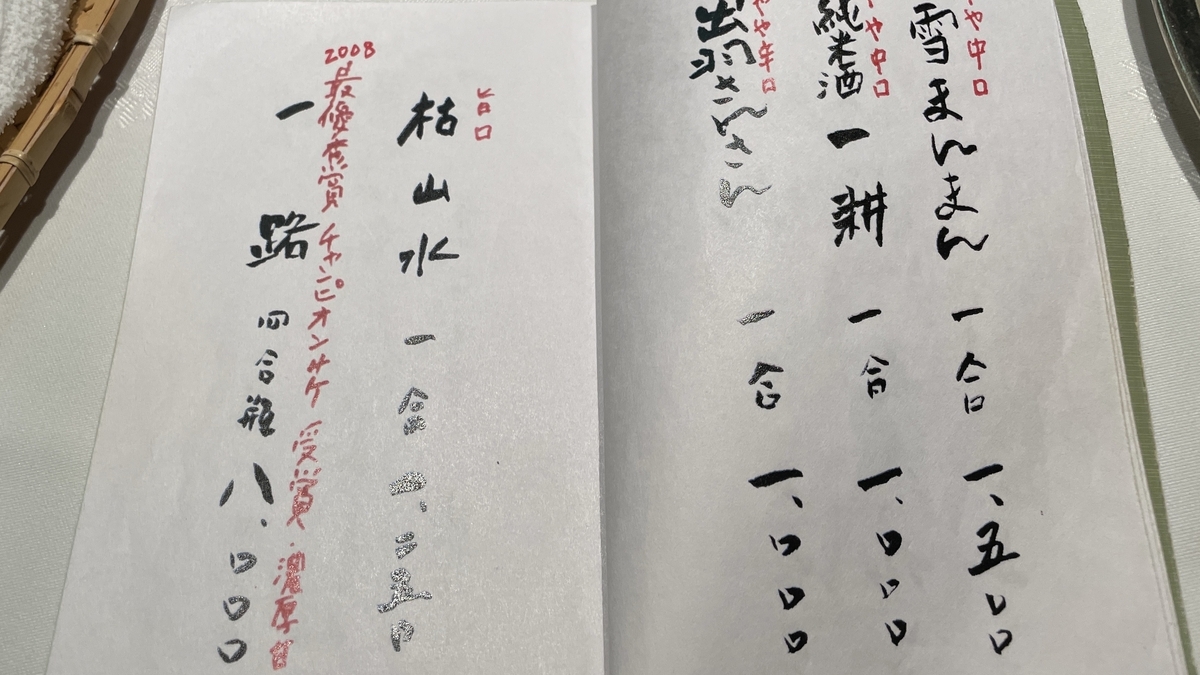 や中口
雪まんまん 一合 一、五〇〇
や中口
純米酒 一耕 一合 一、〇〇〇
やや辛口
出羽さんさん 一合 一、〇〇〇
旨口
枯山水 一合 一、二五〇
2008最優秀賞 チャンピオンサケ 受賞・濃厚旨
一路 四合瓶 八、〇〇〇